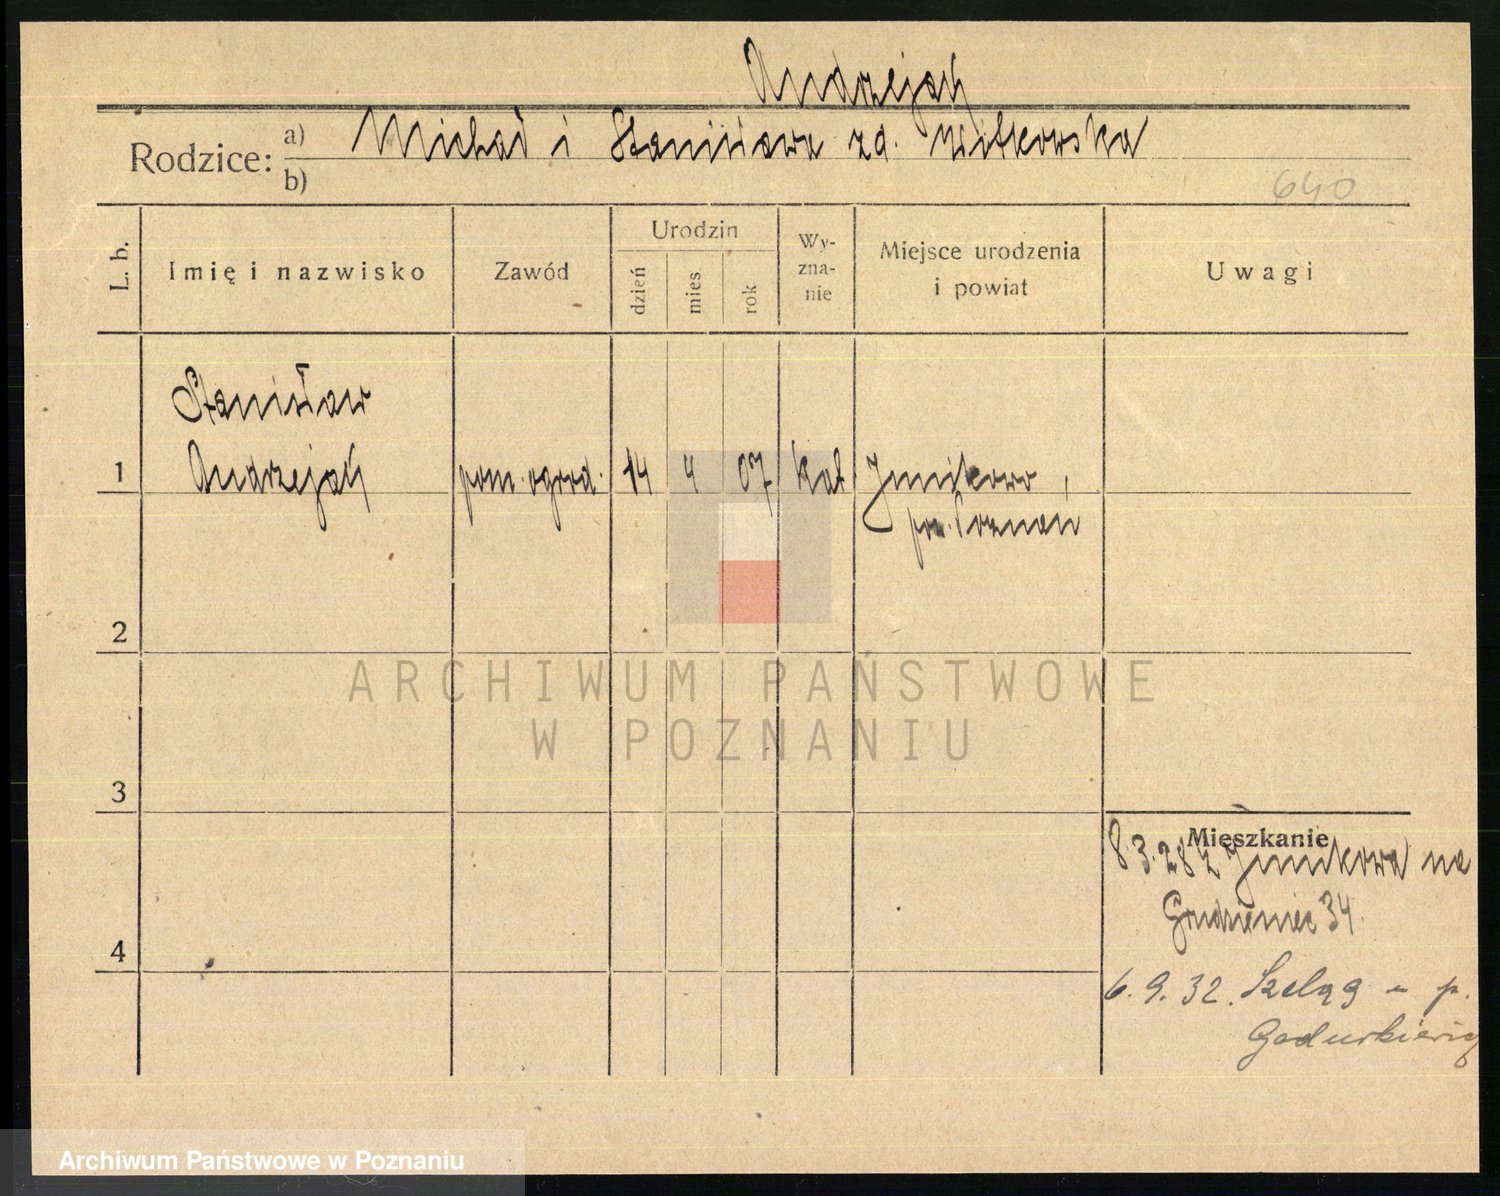 Andrzejak
Rodzice: a) Michał i Stanisława zd. Witkowska
b)
640
L. b.
Imię i nazwisko
Zawód
Urodzin
dzień
mies.
rok
Wy-
zna-
nie
Miejsce urodzenia
i powiat
Uwagi
Stanisław
1 Andrzejak pom. ogrod. 14 4 07 kat Junikowo,
pow. Poznań
2
3
4
Mieszkanie
8.3.28 z Junikowa na
Grudzieniec 34.
6.9.32. Szeląg u p.
ARCHIWUM PAŃSTWOWE
W POZNANIU
Archiwum Państwowe w Poznaniu